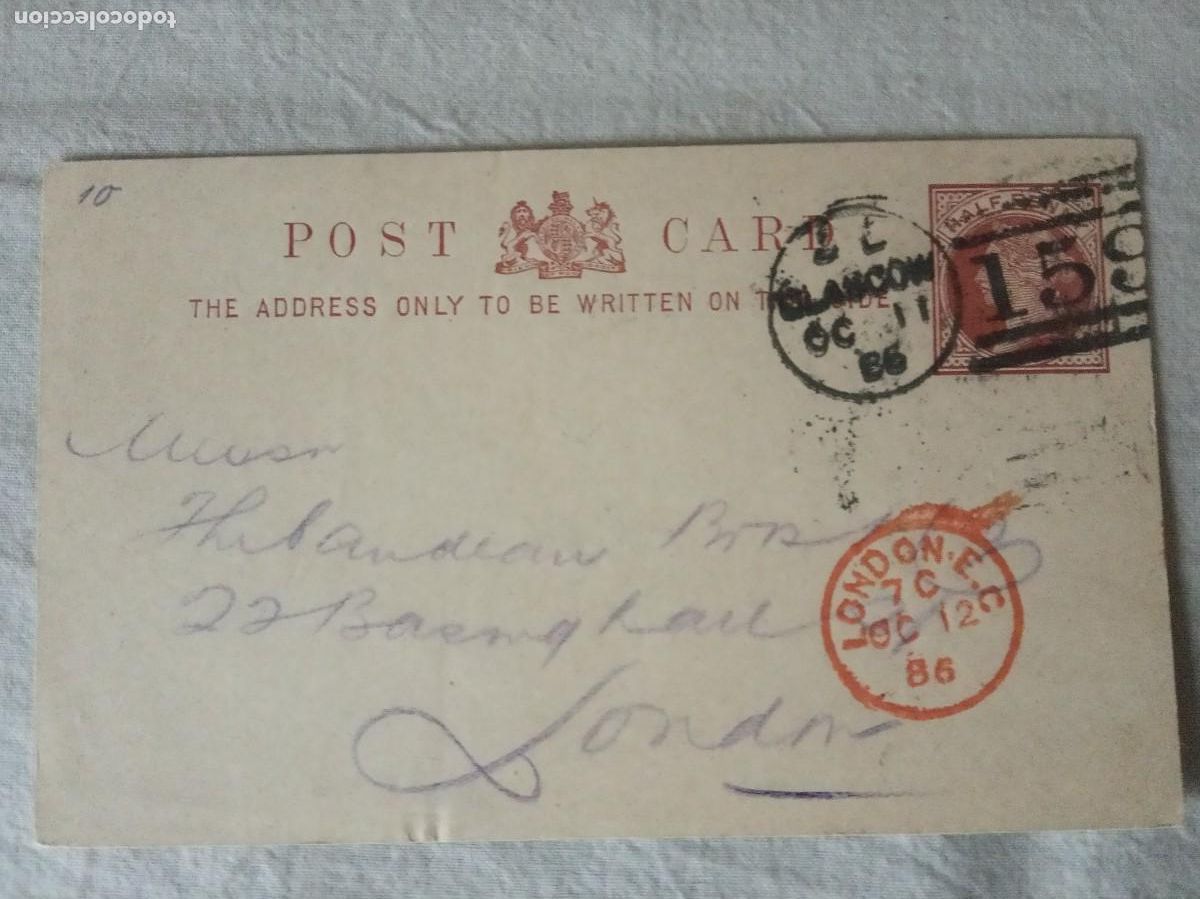 todocoleccion
10
POST CARD
THE ADDRESS ONLY TO BE WRITTEN ON THIS SIDE
HALF PENNY
2 L
GLASGOW
OC 11
86
159
Messrs
Thibaudeau Bros & Co
22 Basinghall St
London
LONDON. E.C
7 C
OC 12
86